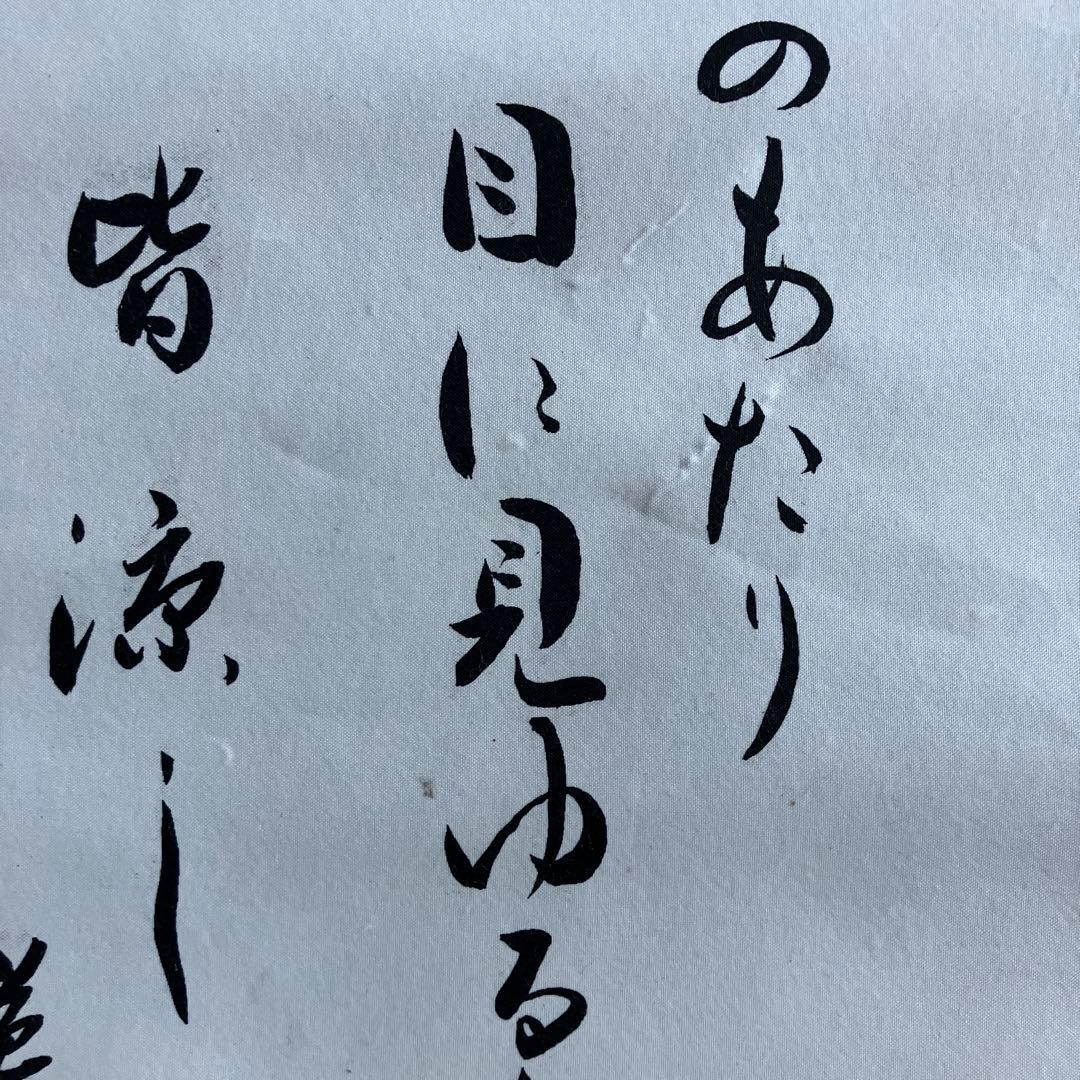 のあたり
目に見ゆる
皆涼し